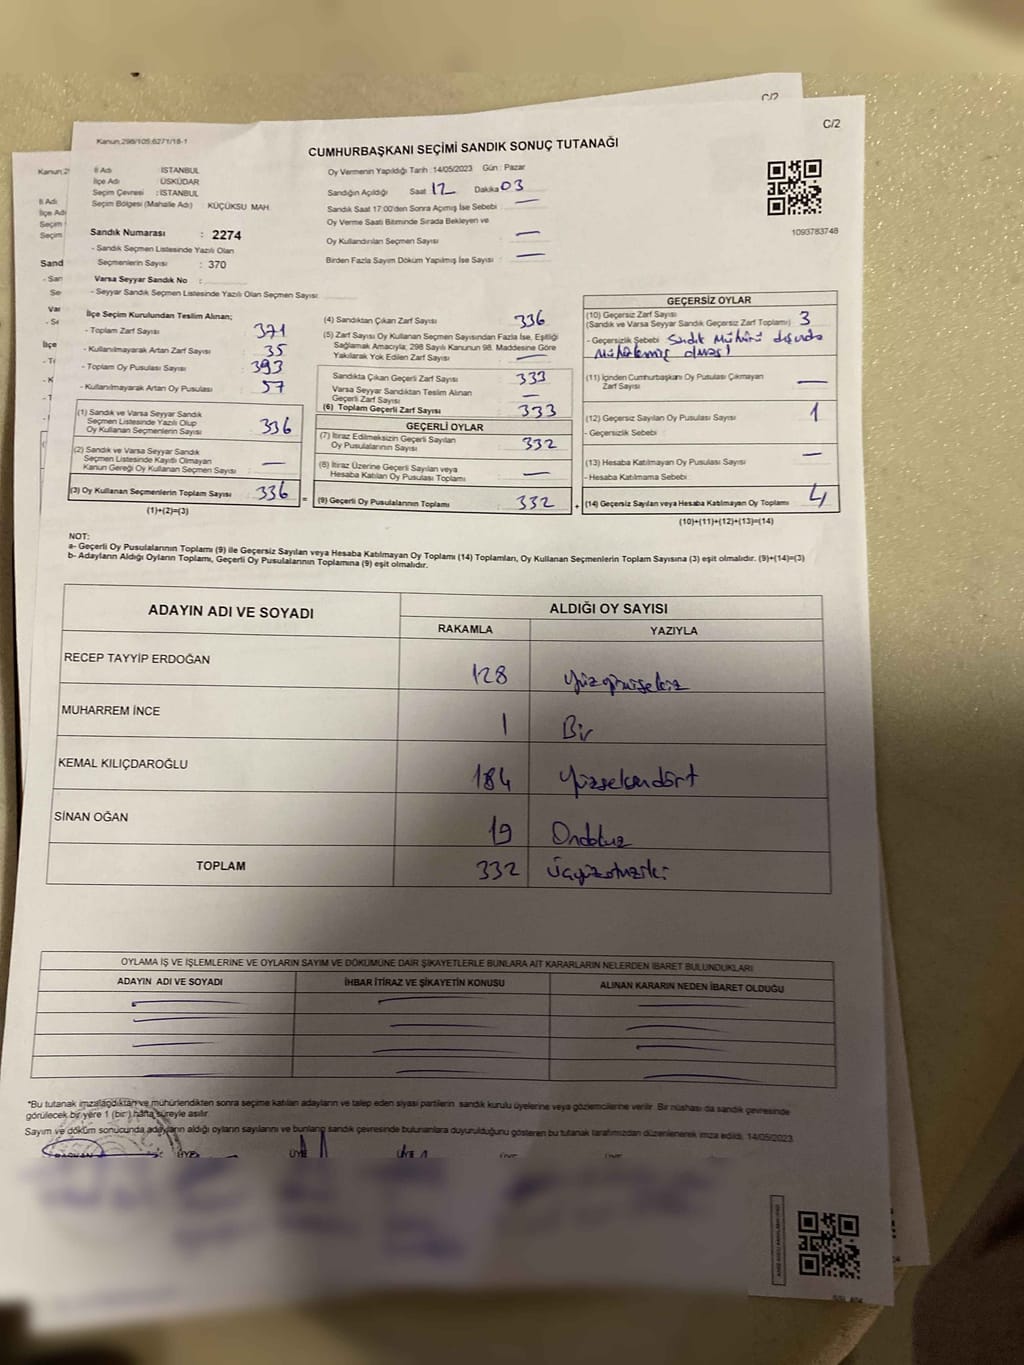 C/2
Kanun:298/105:6271/18-1
C/2
CUMHURBAŞKANI SEÇİMİ SANDIK SONUÇ TUTANAĞI
İl Adı : İSTANBUL
İlçe Adı : ÜSKÜDAR
Seçim Çevresi : İSTANBUL
Seçim Bölgesi (Mahalle Adı) : KÜÇÜKSU MAH.
Sandık Numarası : 2274
- Sandık Seçmen Listesinde Yazılı Olan
Seçmenlerin Sayısı : 370
Varsa Seyyar Sandık No :
- Seyyar Sandık Seçmen Listesinde Yazılı Olan Seçmen Sayısı
Oy Vermenin Yapıldığı Tarih :14/05/2023 Gün : Pazar
Sandığın Açıldığı Saat 17 Dakika 03
Sandık Saat 17:00'den Sonra Açımış İse Sebebi : —
Oy Verme Saati Bitiminde Sırada Bekleyen ve
Oy Kullandırılan Seçmen Sayısı —
Birden Fazla Sayım Döküm Yapılmış İse Sayısı : —
1093783748
İlçe Seçim Kurulundan Teslim Alınan;
- Toplam Zarf Sayısı : 371
- Kullanılmayarak Artan Zarf Sayısı : 35
- Toplam Oy Pusulası : 393
- Kullanılmayarak Artan Oy Pusulası : 57
(1) Sandık ve Varsa Seyyar Sandık
Seçmen Listesinde Yazılı Olup
Oy Kullanan Seçmenlerin Sayısı : 336
(2) Sandık ve Varsa Seyyar Sandık
Seçmen Listesinde Kayıtlı Olmayan
Kanun Gereği Oy Kullanan Seçmen Sayısı : —
(3) Oy Kullanan Seçmenlerin Toplam Sayısı : 336
(1)+(2)=(3)
=
(4) Sandıktan Çıkan Zarf Sayısı : 336
(5) Zarf Sayısı Oy Kullanan Seçmen Sayısından Fazla İse, Eşitliği
Sağlamak Amacıyla; 298 Sayılı Kanunun 98. Maddesine Göre
Yakılarak Yok Edilen Zarf Sayısı : —
Sandıkta Çıkan Geçerli Zarf Sayısı : 333
Varsa Seyyar Sandıktan Teslim Alınan
Geçerli Zarf Sayısı : —
(6) Toplam Geçerli Zarf Sayısı : 333
GEÇERLİ OYLAR
(7) İtiraz Edilmeksizin Geçerli Sayılan
Oy Pusulalarının Sayısı : 332
(8) İtiraz Üzerine Geçerli Sayılan veya
Hesaba Katılan Oy Pusulası Toplamı : —
(9) Geçerli Oy Pusulalarının Toplamı : 332
+
GEÇERSİZ OYLAR
(10) Geçersiz Zarf Sayısı
(Sandık ve Varsa Seyyar Sandık Geçersiz Zarf Toplamı) : 3
- Geçersizlik Sebebi : Sandık Mührü dışında
mühürlenmiş olması
(11) İçinden Cumhurbaşkanı Oy Pusulası Çıkmayan
Zarf Sayısı : —
(12) Geçersiz Sayılan Oy Pusulası Sayısı : 1
- Geçersizlik Sebebi :
(13) Hesaba Katılmayan Oy Pusulası Sayısı : —
- Hesaba Katılmama Sebebi :
(14) Geçersiz Sayılan veya Hesaba Katılmayan Oy Toplamı : 4
(10)+(11)+(12)+(13)=(14)
NOT:
a- Geçerli Oy Pusulalarının Toplamı (9) ile Geçersiz Sayılan veya Hesaba Katılmayan Oy Toplamı (14) Toplamları, Oy Kullanan Seçmenlerin Toplam Sayısına (3) eşit olmalıdır. (9)+(14)=(3)
b- Adayların Aldığı Oyların Toplamı, Geçerli Oy Pusulalarının Toplamına (9) eşit olmalıdır.
ADAYIN ADI VE SOYADI
ALDIĞI OY SAYISI
RAKAMLA YAZIYLA
RECEP TAYYİP ERDOĞAN 128 Yüzyirmisekiz
MUHARREM İNCE 1 Bir
KEMAL KILIÇDAROĞLU 184 Yüzseksendört
SİNAN OĞAN 19 Ondokuz
TOPLAM 332 Üçyüzotuziki
OYLAMA İŞ VE İŞLEMLERİNE VE OYLARIN SAYIM VE DÖKÜMÜNE DAİR ŞİKAYETLERLE BUNLARA AİT KARARLARIN NELERDEN İBARET BULUNDUKLARI
ADAYIN ADI VE SOYADI İHBAR İTİRAZ VE ŞİKAYETİN KONUSU ALINAN KARARIN NEDEN İBARET OLDUĞU
*Bu tutanak imzalandıktan ve mühürlendikten sonra seçime katılan adayların ve talep eden siyasi partilerin sandık kurulu üyelerine veya gözlemcilerine verilir. Bir nüshası da sandık çevresinde
görülecek bir yere 1 (bir) hafta süreyle asılır.
Sayım ve döküm sonucunda adayların aldığı oyların sayılarını ve bunların sandık çevresinde bulunanlara duyurulduğunu gösteren bu tutanak tarafımızdan düzenlenerek imza edildi. 14/05/2023
BAŞKAN ÜYE ÜYE ÜYE ÜYE ÜYE